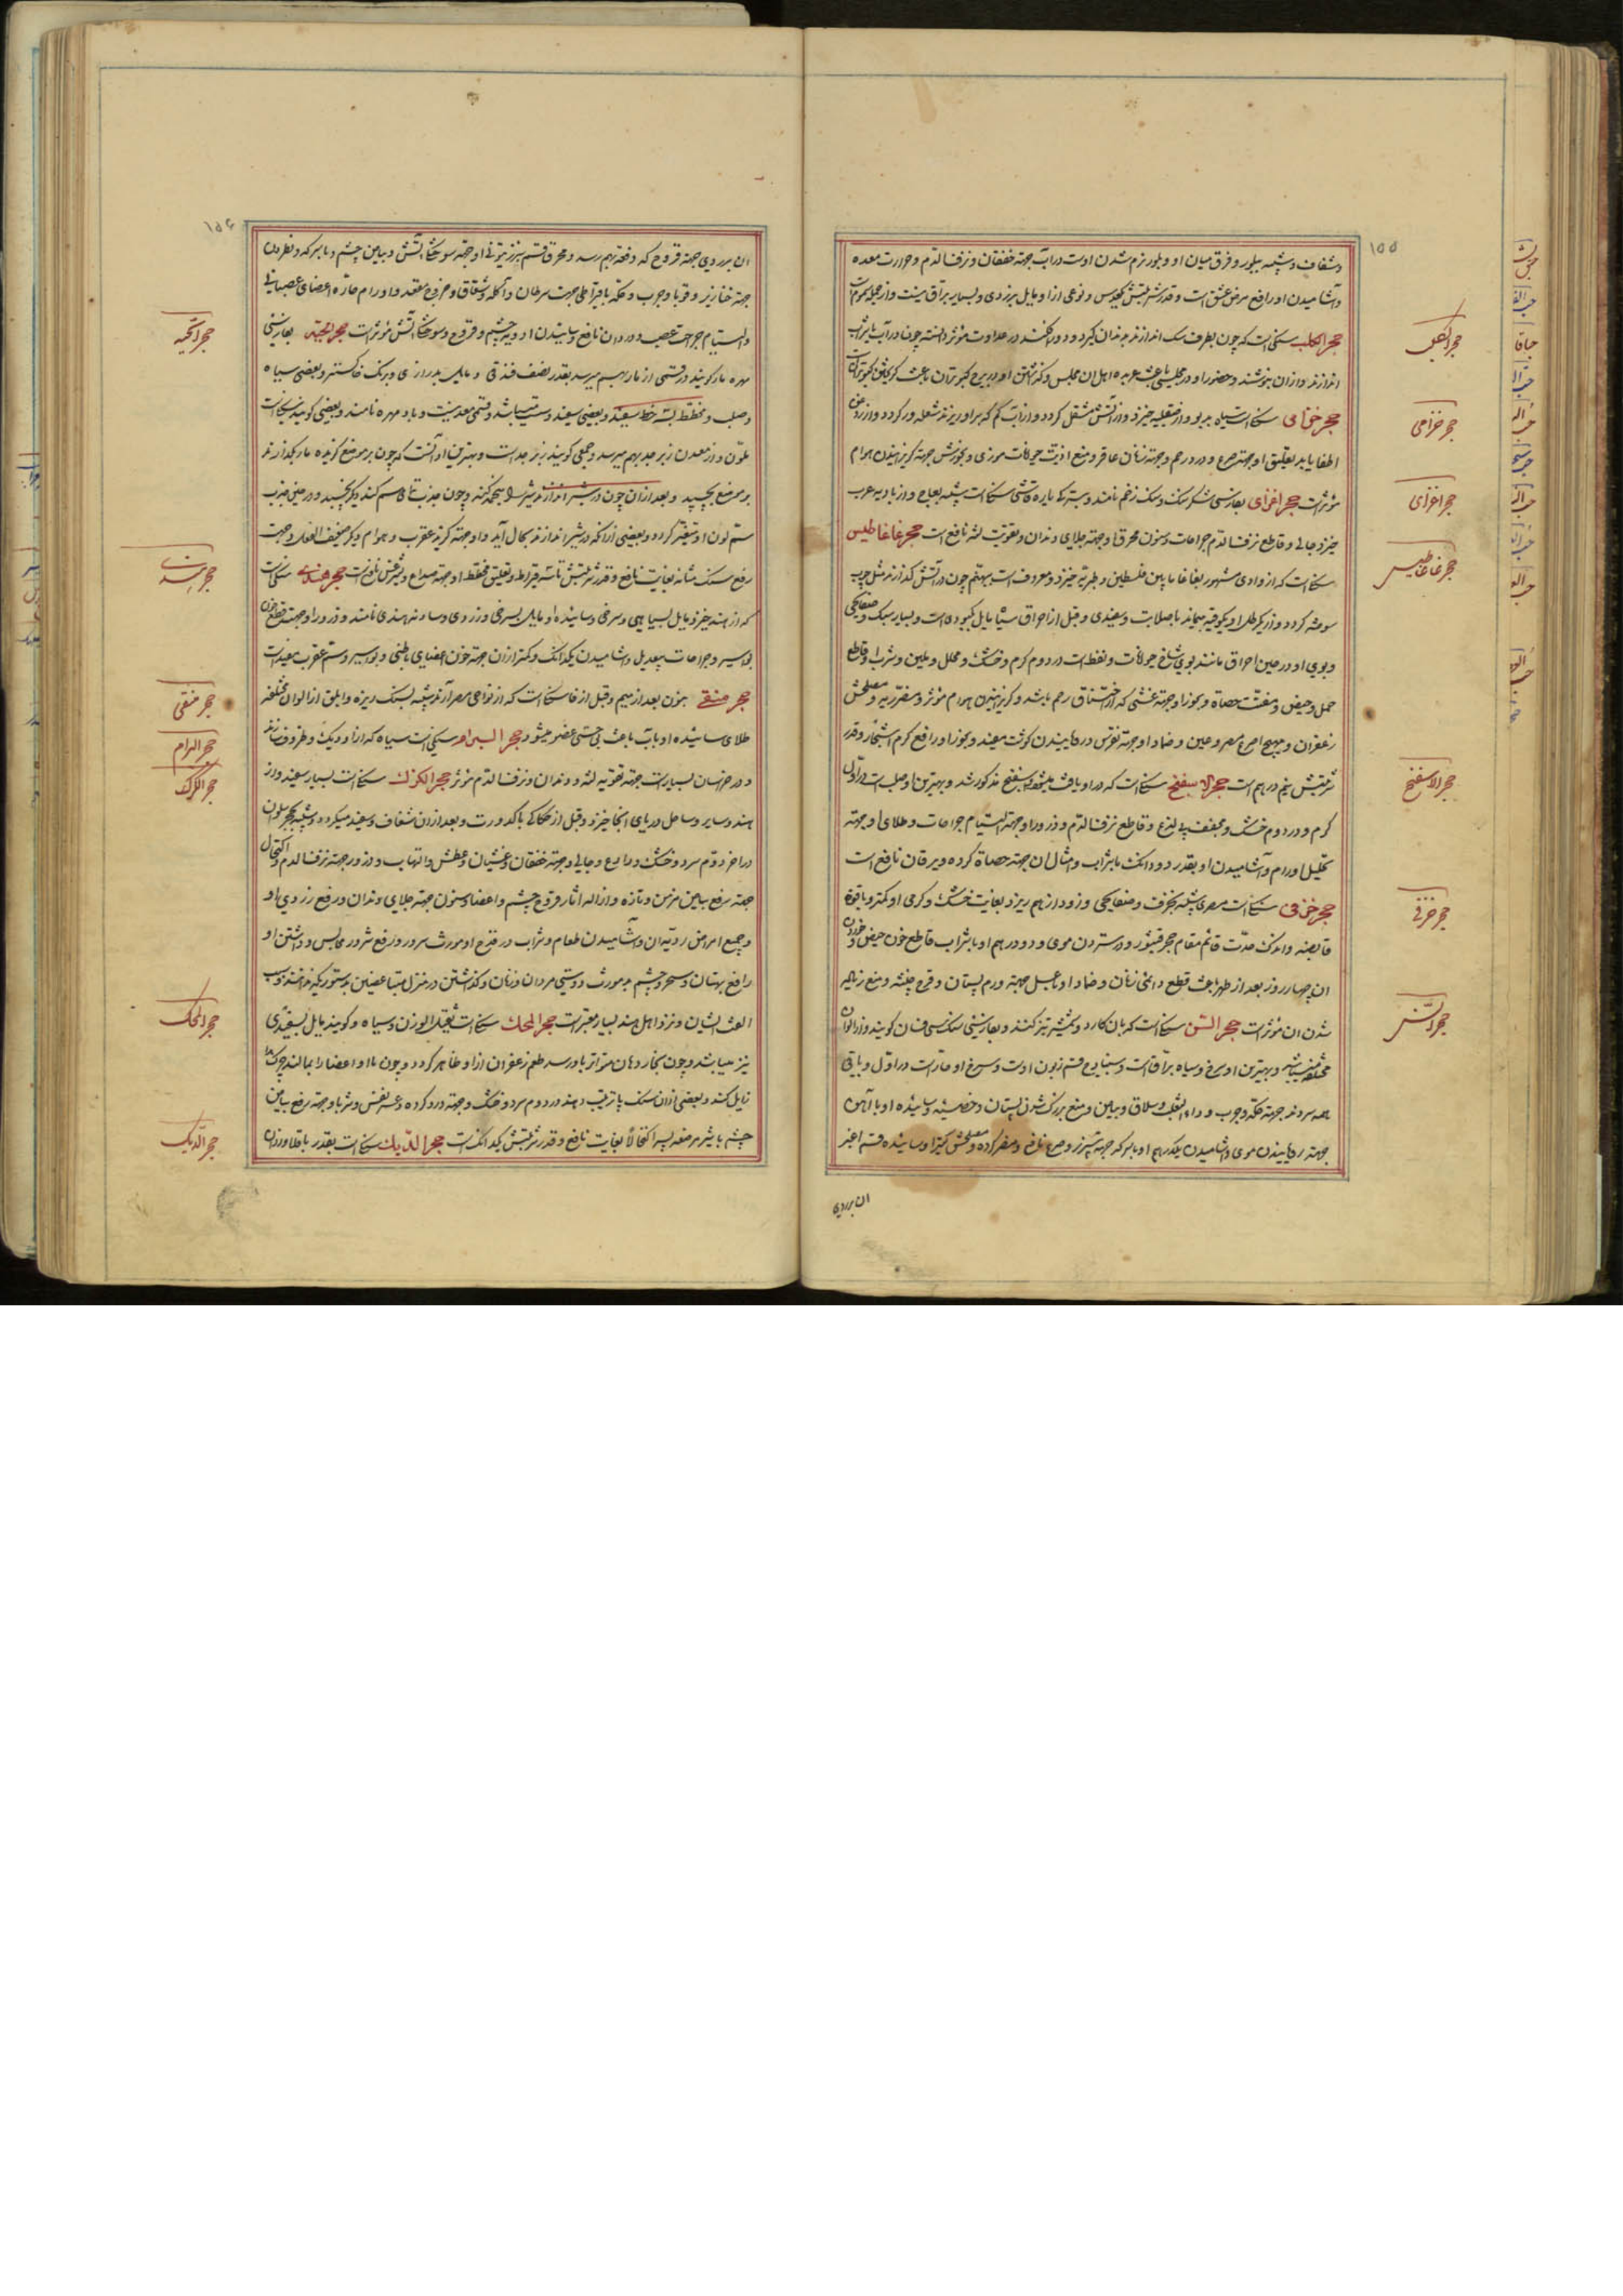 ۱۵۵
و شفاف و شبیه ببلور و فرق میان او و بلور نرم شدن اوست در آب جهة خفقان و نزف الدم و حرارت معده
و آشامیدن او رافع مرض عشق است و قدر شربتش و نوعی ازو مایل بزردی و بسیار براق
حجر الکلب سنکی است که چون بطرف سک اندازند بدندان کیرد و دور افکند در عداوت مؤثر دانسته چون در آب یا شراب
اندازند و از ان بنوشند و حضور او در مجلس باعث عربده اهل ان مجلس و کذاشتن او در برج کبوتران باعث کریختن کبوتران
حجر خزامی سنکی است سیاه بدبو و از صقلیه خیزد و از آتش مشتعل کردد و از آب که بر او ریزند شعله ور کردد و از روغن
اطفا یابد تعلیق او جهة صرع و درد رحم و جهة زنان عاقر و منع اذیت حیوانات موذی و بخورش جهة کریزانیدن هوام
مؤثر است حجر اغزای بفارسی شکر سنک و سنک زخم نامند و سنکی است شبیه بعاج و از بادیه عرب
خیزد جالی و قاطع نزف الدم جراحات و سنون محرق او جهة جلای دندان و تقویت لثه نافع است حجر غاغاطیس
سنکی است که از وادی مشهور بغاغا مابین فلسطین و طبریه خیزد و معروف است چون در آتش کذارند مثل چوب
سوخته کردد و از یکرطل او یکوقیه بماند با صلابت و سفیدی و قبل از احراق سیاه مایل بکبودی است و بسیار سبک و صفایحی
و بوی او در حین احراق مانند بوی شاخ حیوانات و نفط است در دوم کرم و خشک و محلل و ملین و شرب او قاطع
حمل و حیض و مفتت حصاة و بخور او جهة غشی که از اختناق رحم باشد و کریزانیدن هوام مؤثر و مضر ریه و مصلحش
زعفران و مهیج صرع مصروعین و ضماد او جهة نقرس و رویانیدن کوشت مفید و بخور او رافع کرم اشجار و قدر
شربتش نیم درهم است حجر الاسفنج سنکی است که در او یافت میشود و در اسفنج مذکور شد و بهترین او صلب است در اول
کرم و در دوم خشک و مجفف بی لذع و قاطع نزف الدم و ذرور او جهة التیام جراحات و طلای او جهة
تحلیل اورام و آشامیدن او بقدر دو دانک با شراب و امثال ان جهة حصاة کرده و یرقان نافع است
حجر خزفی سنکی است مصری شبیه بخزف و صفایحی و زود از هم ریزد بغایت خشک و کرمی او کمتر و با قوة
قابضه و اندک حدت قائم مقام حجر قیشور در ستردن موی و دو درهم او با شراب قاطع خون حیض و خوردن
ان چهار روز بعد از طهر باعث قطع دائمی زنان و ضماد او با عسل جهة ورم پستان و قرح خبیثه و منع زیاده
شدن ان مؤثر است حجر المسن سنکی است که بان کارد و شمشیر تیز کنند و بفارسی سنک فسان کویند و از الوان
مختلفه میباشد و بهترین او سرخ و سیاه براق است و سبز قسم زبون اوست و سرخ او حار است در اول و باقی
همه سردند جهة حکه و جرب و داء الثعلب و سلاق و بیاض و منع بزرک شدن پستان و خصیه و ساییده او با آهن
جهة رویانیدن موی و آشامیدن یکدرهم او با سرکه جهة سپرز و صرع نافع و مضر کرده و مصلحش کتیرا و ساییده قسم اخضر
ان برودی
حجر الکلب
حجر خزامی
حجر اغزای
حجر غاغاطیس
حجر الاسفنج
حجر خزفی
حجر المسن
۱۵۶
ان برودی جهة قروح که دفعة بهم رسد و محرق قسم سبز زیتونی او جهة سوختکی آتش و بیاض چشم و با سرکه و نطرون
جهة خنازیر و قوبا و جرب و حکه با قیراطی جهت سرطان و آکله و شقاق و خروج مقعد و اورام حاره اعضای عصبانی
و التیام جراحت عصب و درد ان نافع و ساییدن ادویه چشم و قروح و سوختکی آتش مؤثر است حجر الحیة بفارسی
مهره مار کویند و قسمی از مار بهم میرسد بقدر نصف فندقی و مایل بدرازی و برنک خاکستر و بعضی سیاه
و صلب و مخطط بسه خط سفید و بعضی سفید و سست میباشد و قسمی معدنیست و باد مهره نامند و بعضی کویند سنکی است
ملون و از معدن زبرجد بهم میرسد و جمعی کویند زبرجد است و بهترین او آنست که چون بر موضع کزیده مار بکذارند
بر موضع بچسبد و بعد از ان چون در شیر اندازند شیر را منجمد کند و چون جذب تمام سم کند دیکر نچسبد و در حین جذب
سم لون او متغیر کردد و بعضی از آنکه در شیر اندازند بحال آید و او جهة کزیدن عقرب و هوام دیکر ضعیف الفعل و جهت
رفع سنک مثانه بغایت نافع و قدر شربتش تا سه قیراط و تعلیق مخطط او جهة صداع و لیثرغس نافع است حجر هندی سنکی است
که از هند خیزد مایل بسیاهی و سرخی و ساییده او مایل بسرخی و زردی و سادنه هندی نامند و ذرور او جهة قطع خون
بواسیر و جراحات بیعدیل و آشامیدن یکدانک و کمتر از ان جهة خون اعضای باطنی و بواسیر و سم عقرب مفید است
حجر منفی بنون بعد از میم و قبل از فا سنکی است که از نواحی مصر آرند شبیه بسنک ریزه و ابلق از الوان مختلفه
طلای ساییده او با آب باعث بی حسی عضو میشود حجر البرام سنکی است سیاه که از او دیک و ظروف سازند
و در خراسان بسیار است جهة تقویه لثه و دندان و نزف الدم مؤثر حجر الکرک سنکی است بسیار سفید و از
هند و سایر سواحل دریای انجا خیزد و قبل از حکاکی با کدورت و بعد از ان شفاف و سفید میکردد و شبیه بحجر بلور ان
در اخر دوم سرد و خشک و رادع و جالی و جهة خفقان و غثیان و عطش و التهاب و ذرور جهة نزف الدم و اکتحال
جهة رفع بیاض مزمن و تازه و ازاله اثار قروح چشم و اعضا و سنون جهة جلای دندان و رفع زردی او
و جمیع امراض ردیه ان و آشامیدن طعام و شراب در قدح او مورث سرور و رافع شرور مجالس و داشتن او
رافع بهتان و سحر و چشم بد مورث دوستی مردان و زنان و کذاشتن در منزل متباغضین بدستوریکه ندانند سبب
الفت ایشان و نزد اهل هند بسیار معتبر است حجر المحک سنکی است ثقیل الوزن و سیاه و کویند مایل بسفیدی
نیز میباشد و چون بخار دهان متواتر باو رسد طعم زعفران ازو ظاهر کردد و چون با او اعضا را بمالند چرک را
زایل کند و بعضی از ان سنک در دوم سرد و خشک و جهة درد کرده و عسر نفس شربا و جهة رفع بیاض
چشم با شیر مرضعه پسر اکتحالا بغایت نافع و قدر شربتش یکدانک است حجر الدیک سنکی است بقدر باقلا و از ان
حجر الحیة
حجر هندی
حجر منفی
حجر البرام
حجر الکرک
حجر المحک
حجر الدیک